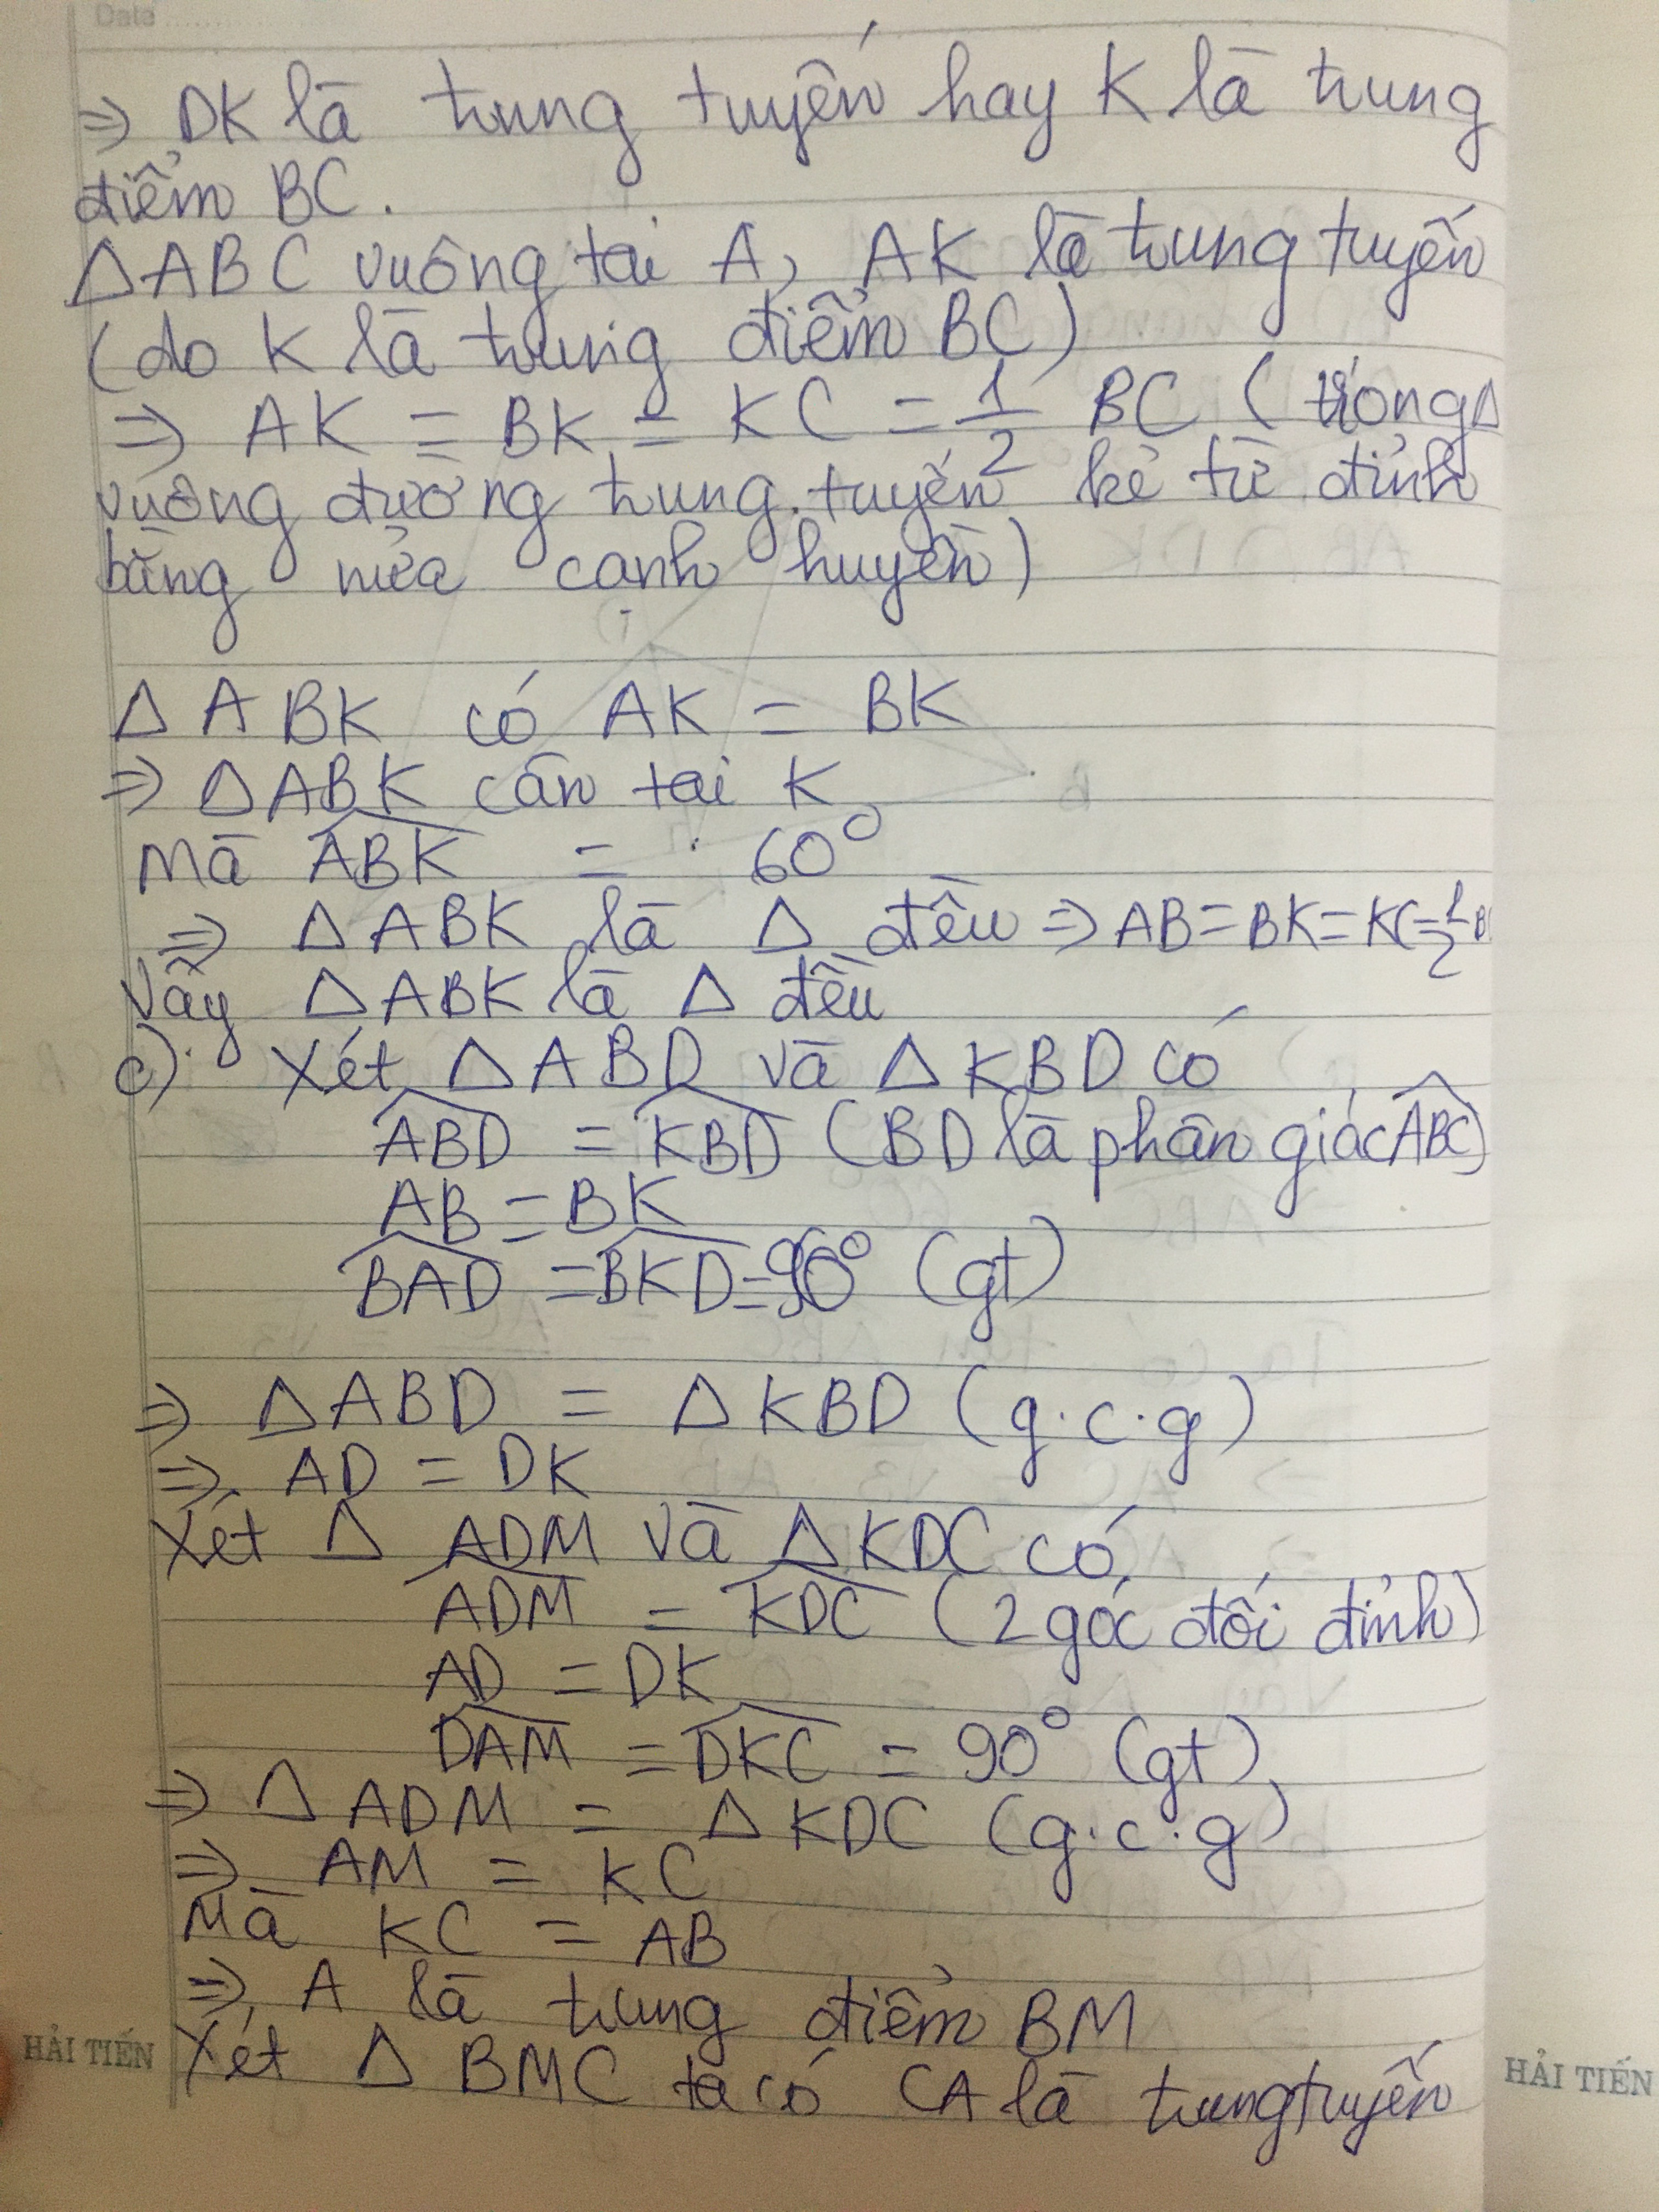 Date
⇒ DK là trung tuyến hay K là trung
điểm BC.
△ABC vuông tại A, AK là trung tuyến
(do K là trung điểm BC)
⇒ AK = BK = KC = 1/2 BC (trong △
vuông đường trung tuyến kẻ từ đỉnh
bằng nửa cạnh huyền)
△ABK có AK = BK
⇒ △ABK cân tại K
Mà \widehat{ABK} = 60°
⇒ △ABK là △ đều ⇒ AB = BK = KC = 1/2 BC
Vậy △ABK là △ đều
c) Xét △ABD và △KBD có
\widehat{ABD} = \widehat{KBD} (BD là phân giác \widehat{ABC})
AB = BK
\widehat{BAD} = \widehat{BKD} = 90° (gt)
⇒ △ABD = △KBD (g.c.g)
⇒ AD = DK
Xét △ADM và △KDC có
\widehat{ADM} = \widehat{KDC} (2 góc đối đỉnh)
AD = DK
\widehat{DAM} = \widehat{DKC} = 90° (gt)
⇒ △ADM = △KDC (g.c.g)
⇒ AM = KC
Mà KC = AB
⇒ A là trung điểm BM
Xét △BMC ta có CA là trung tuyến
HẢI TIẾN
HẢI TIẾN